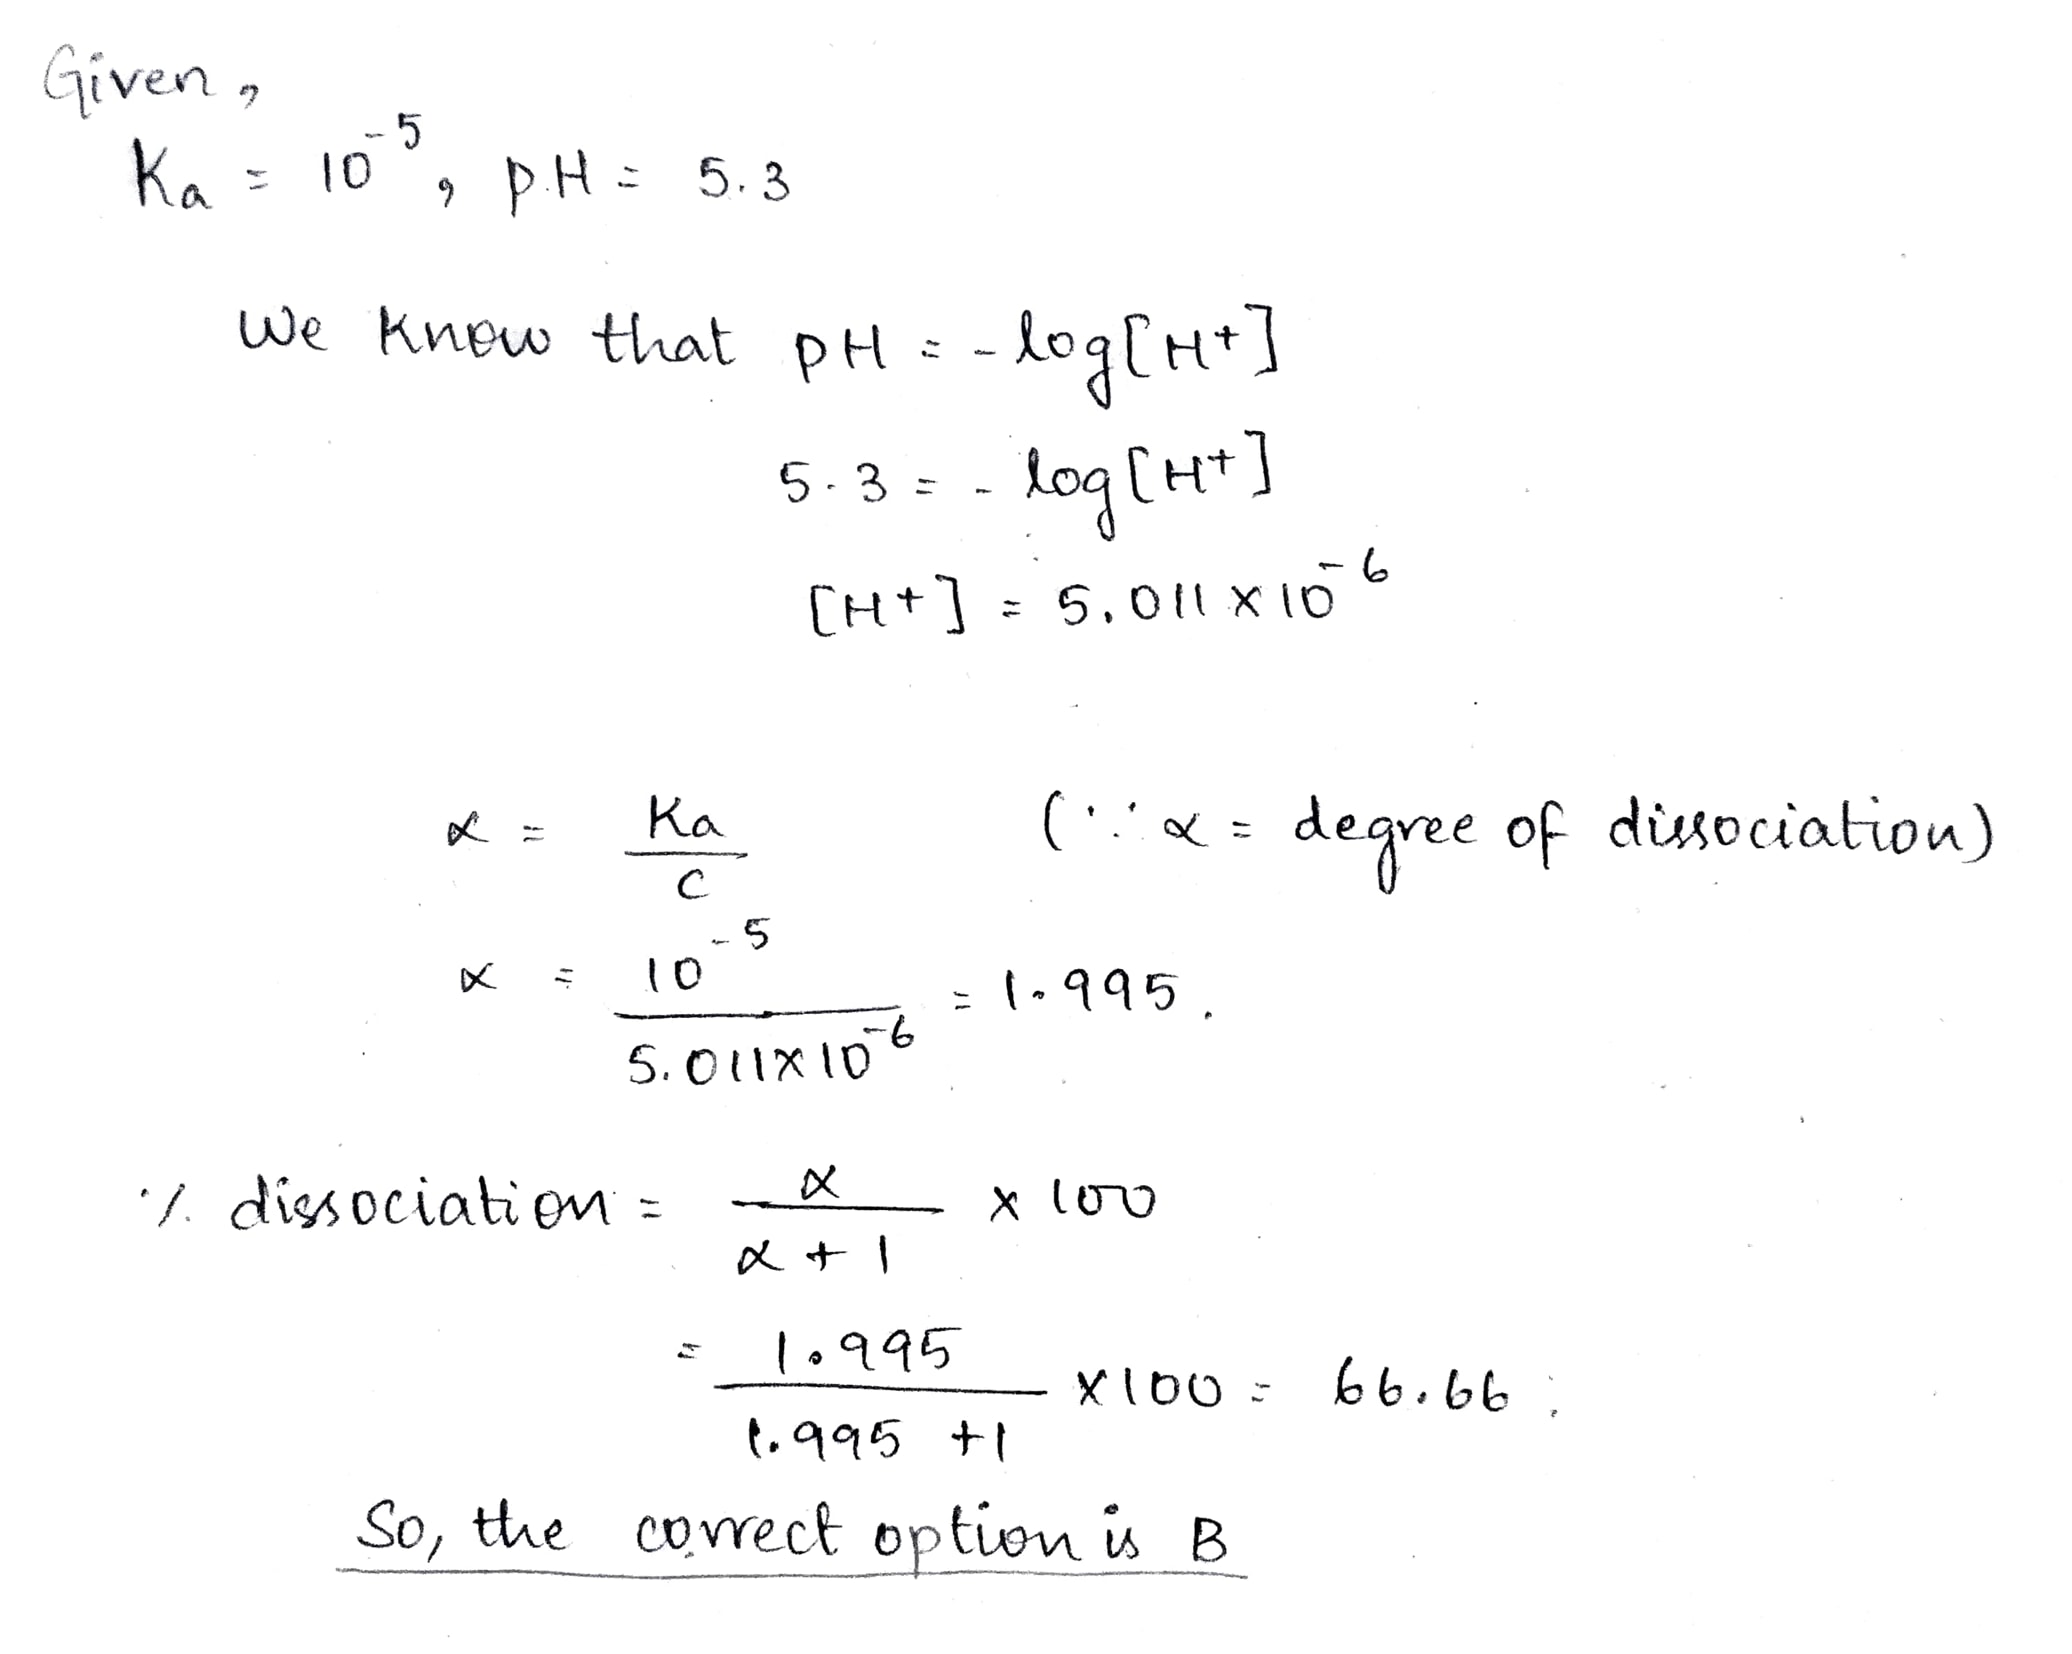 Given,
Ka = 10⁻⁵, pH = 5.3
We know that pH = -log[H+]
5.3 = -log[H+]
[H+] = 5.011 x 10⁻⁶
α = Ka/C (∵ α = degree of dissociation)
α = 10⁻⁵/5.011x10⁻⁶ = 1.995.
% dissociation = α/α+1 x 100
= 1.995/1.995+1 x100 = 66.66
So, the correct option is B